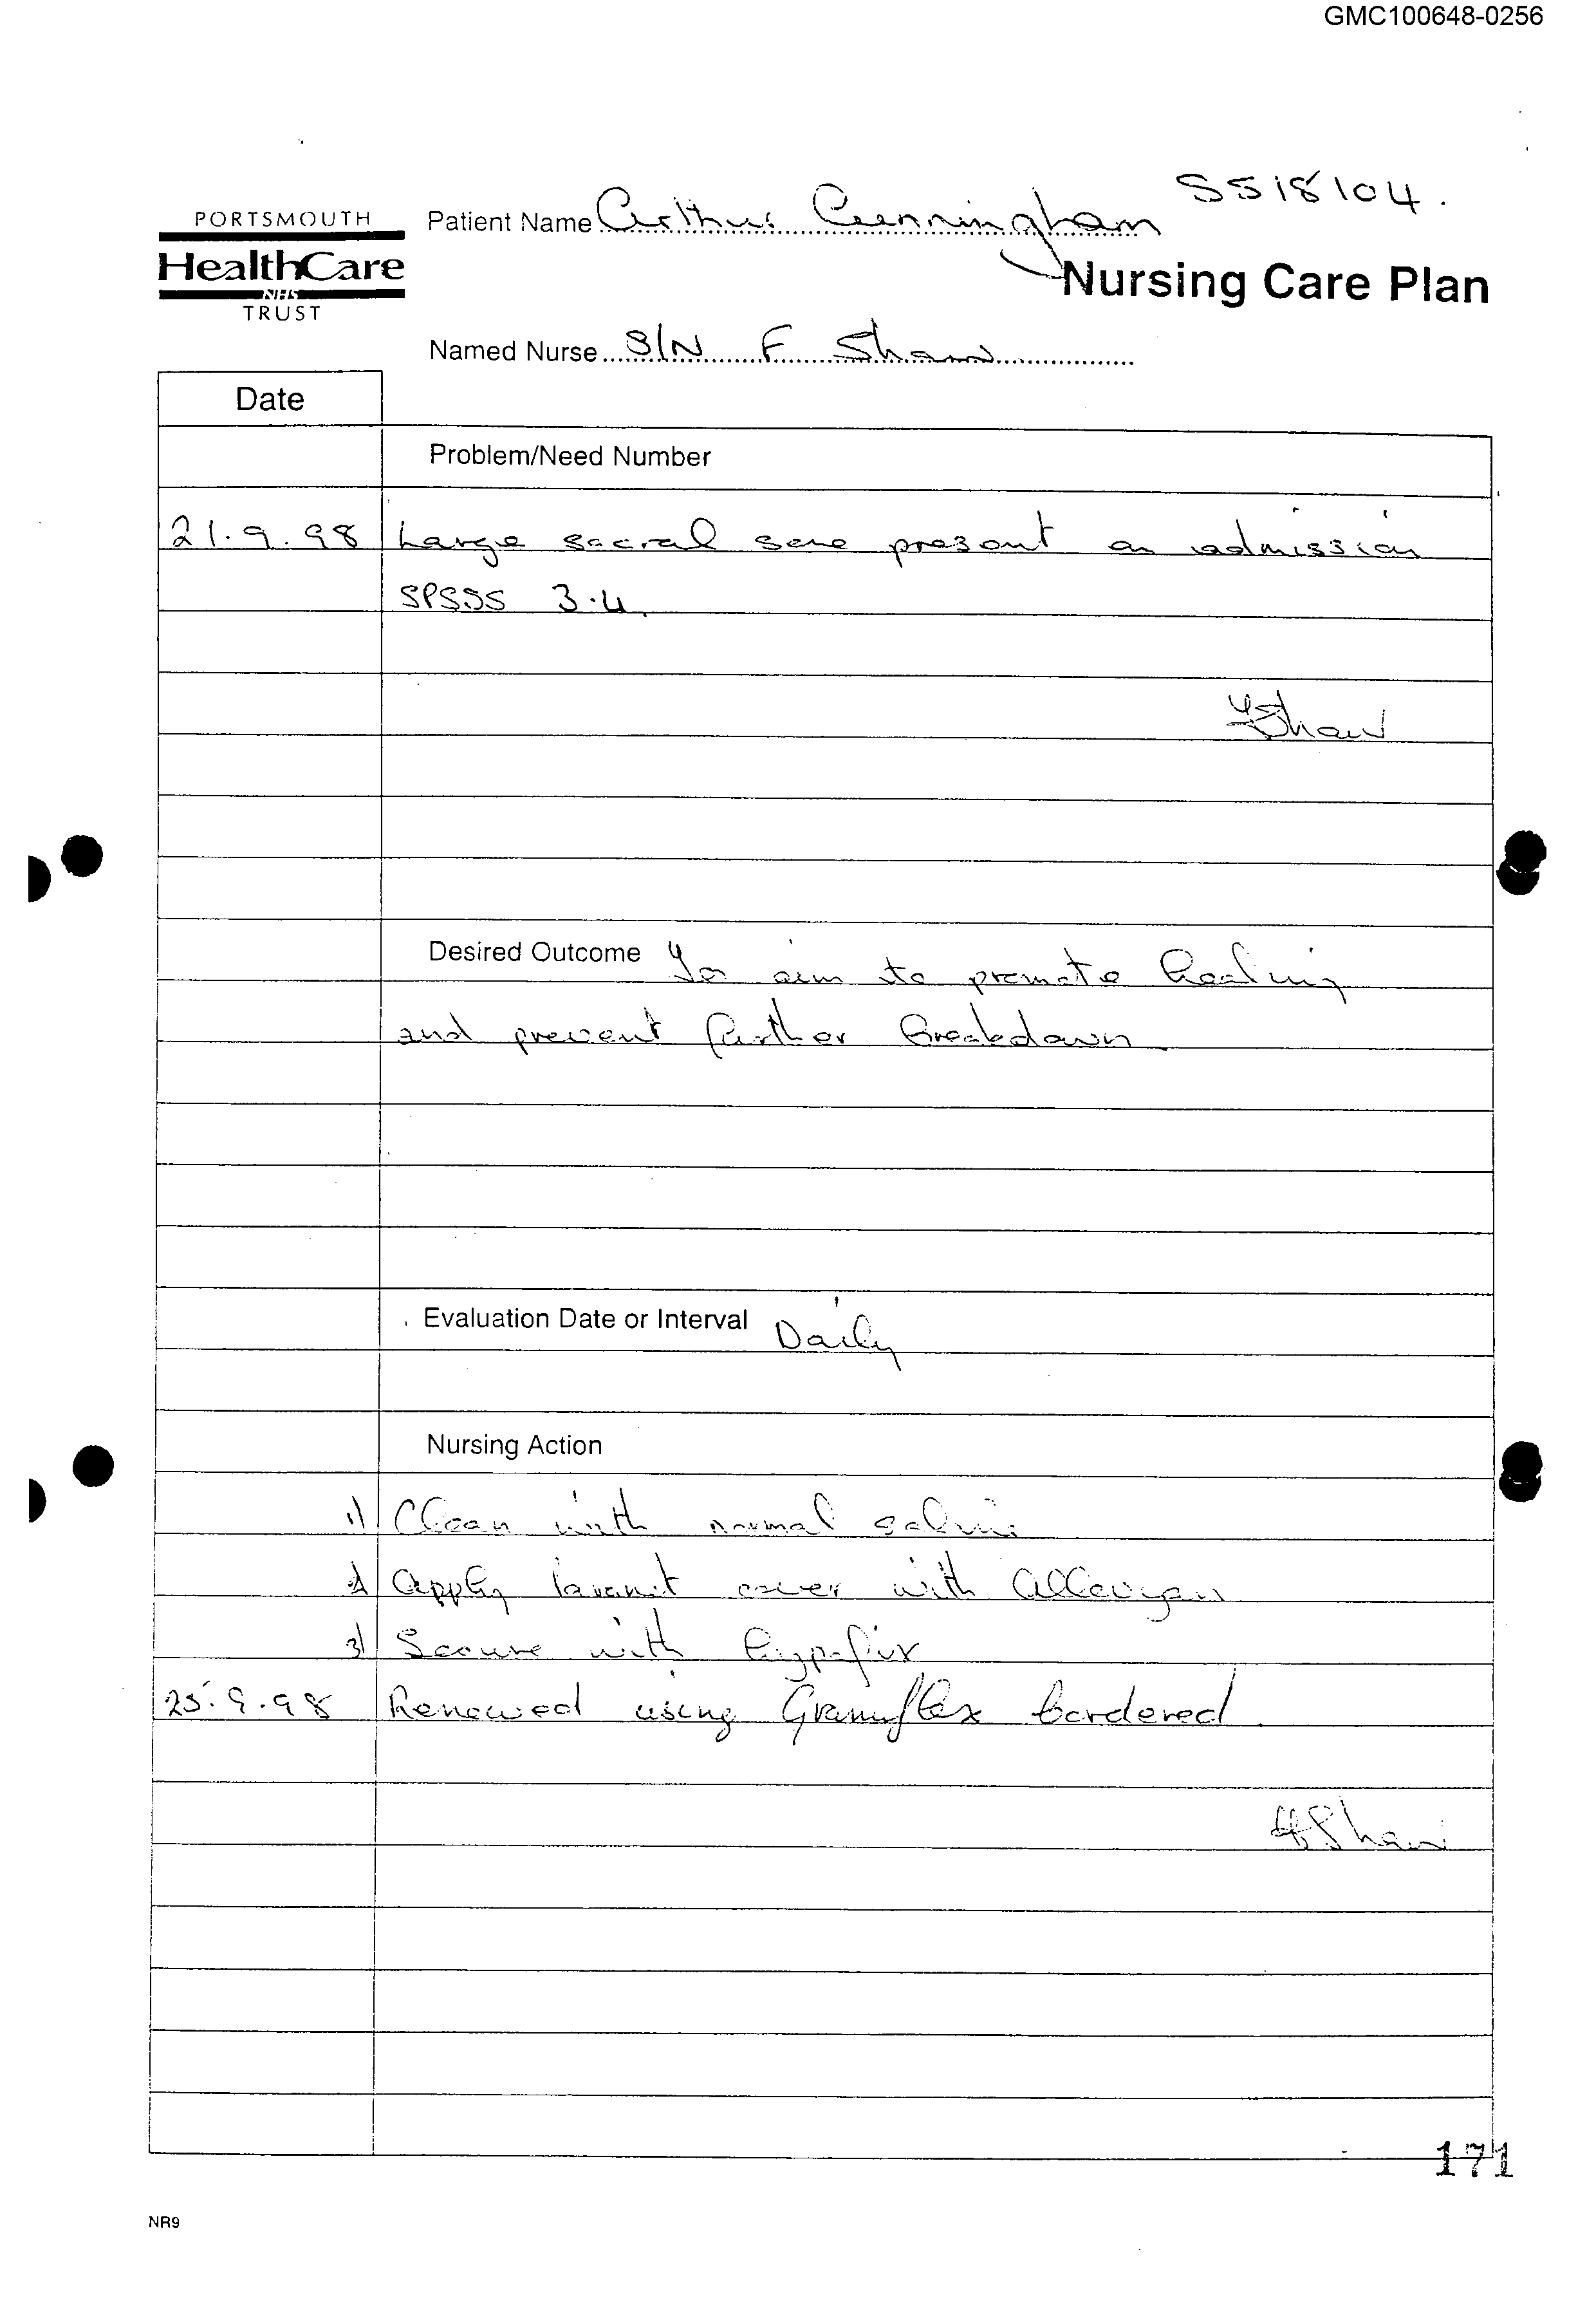 GMC100648-0256
SS18104.
PORTSMOUTH
HealthCare
NHS
TRUST
Patient Name Arthur Cunningham
Nursing Care Plan
Named Nurse S/N F Shaw
Date
Problem/Need Number
21.9.98 Large sacral sore present on admission
SPSSS 3.4.
F Shaw
Desired Outcome To aim to promote healing
and prevent further breakdown
Evaluation Date or Interval Daily
Nursing Action
1) Clean with normal saline
2) Apply cover with allevyn
3) Secure with hypafix
25.9.98 Renewed using Granuflex bordered.
F Shaw
171
NR9